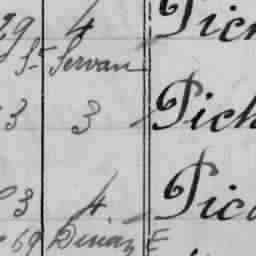 29 4 Pich
St Servan
3 3 Pich
3 4 Pica
69 Dinan E